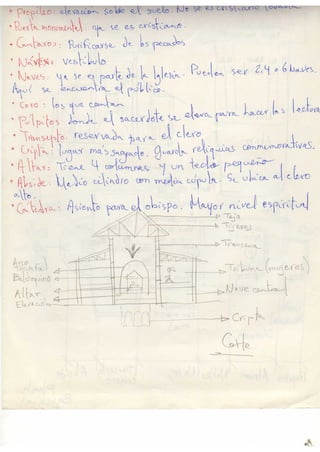 • Propileo: elevación sobre el suelo. No se es cristiano
• Puerta monumental: ya se es cristiano.
• Cántaros: Purificarse de los pecados
• Nártex: vestíbulo
• Naves: ya se es parte de la Iglesia. Pueden ser 2,4 o 6 Naves.
Aquí se encuentra el público.
• Coro: los que cantan
• Púlpitos donde el sacerdote se eleva para hacer las lectura
• Transepto: reservada para el clero
• Cripta: lugar mas sagrado. Guarda reliquias conmemorativas.
• Altar: Tiene 4 columnas y un techo pequeño
• Ábside: Medio cilindro con media cúpula. Se ubica al clero
alto.
• Cátedra: Asiento para el obispo. Mayor nivel espiritual
Teja
Tijeras
Arco
Triunfal
Baldaquino
Altar
Elevación
Tribuna (mujeres)
Nave central
Cripta
Corte